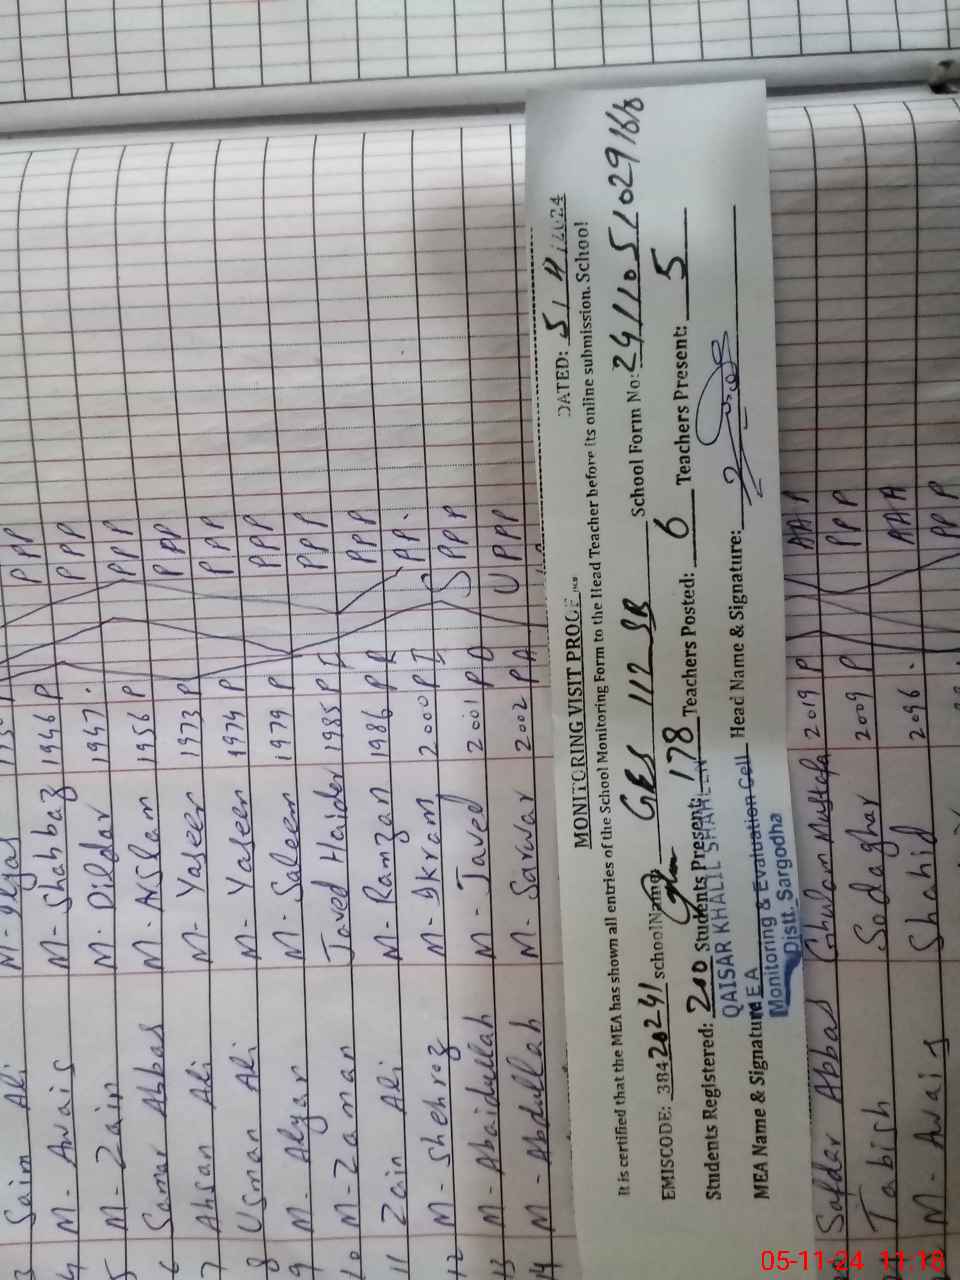 3 Saim Ali M- Ilyas P PPP
4 M- Awais M- Shahbaz 1946 P PPP
5 M- Zair M. Dildar 1947 . PPP
6 Samar Abbas M. Aslam 1956 P PPP
7 Ahsan Ali M- Yaseen 1973 P PPP
8 Usman Ali M- Yaseen 1974 P PPP
9 M- Alyar M- Saleem 1979 P PPP
10 M- Zaman Javed Haider 1985 P PPP
11 Zain Ali M- Ramzan 1986 P PP.
12 M- Shehroz M- Ikram 2000 P PPP
13 M- Abaidullah M- Javed 2001 P PPP
14 M- Abdullah M- Sarwar 2002 P
MONITORING VISIT PROOF
DATED: 5/11/2024
It is certified that the MEA has shown all entries of the School Monitoring Form to the Head Teacher before its online submission. School
EMISCODE: 38420241 school Name GES 112 SB School Form No: 241105102916
Students Registered: 200 Students Present: 178 Teachers Posted: 6 Teachers Present: 5
MEA Name & Signature Head Name & Signature:
QAISAR KHALIL SHAHEEN
MEA
Monitoring & Evaluation Cell
Distt. Sargodha
Safdar Abbas Ghulam Mustafa 2019 P AAP
Tabish Sodaghar 2009 P PPP
M- Awais Shahid 2096 . AAA
PPP
05-11-24 11:18